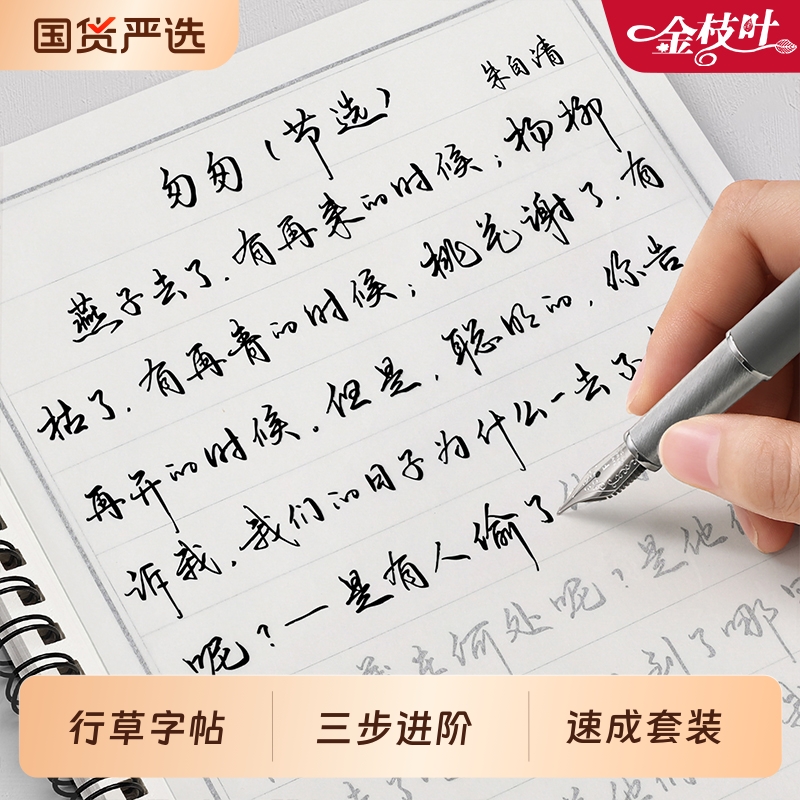 国货严选
金枝叶
朱自清
匆匆(节选)
燕子去了,有再来的时候;杨柳
枯了,有再青的时候;桃花谢了,有
再开的时候。但是,聪明的,你告
诉我,我们的日子为什么一去不
呢?一是有人偷了
在何处呢?是他
到了哪
行草字帖
三步进阶
速成套装